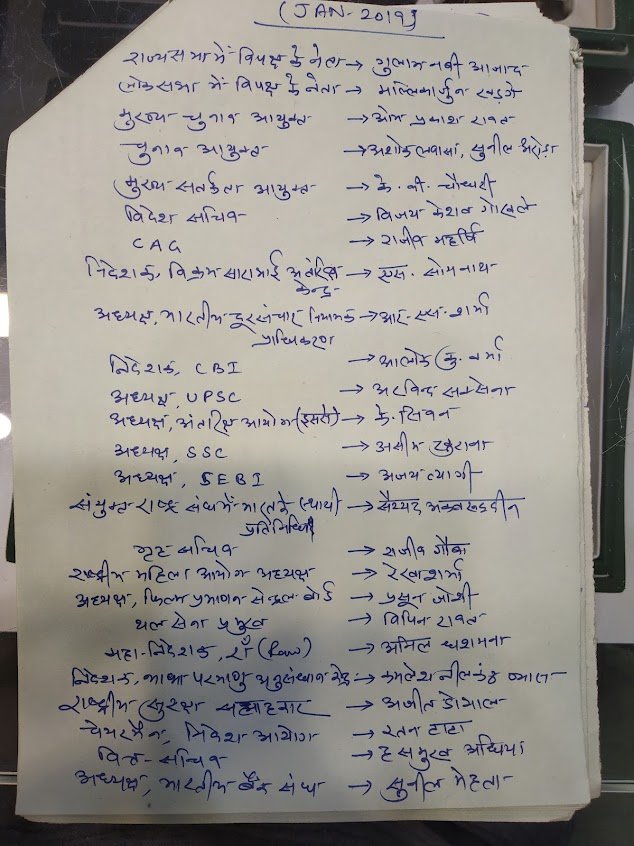 (JAN-2019)
राज्यसभा में विपक्ष के नेता → गुलाम नबी आजाद
लोकसभा में विपक्ष के नेता → मल्लिकार्जुन खड़गे
मुख्य चुनाव आयुक्त → ओम प्रकाश रावत
चुनाव आयुक्त → अशोक लवासा, सुनील अरोड़ा
मुख्य सतर्कता आयुक्त → के. वी. चौधरी
विदेश सचिव → विजय केशव गोखले
CAG → राजीव महर्षि
निदेशक, विक्रम साराभाई अंतरिक्ष → एस. सोमनाथ
केन्द्र
अध्यक्ष, भारतीय दूरसंचार नियामक → आर. एस. शर्मा
प्राधिकरण
निदेशक, CBI → आलोक कु. वर्मा
अध्यक्ष, UPSC → अरविन्द सक्सेना
अध्यक्ष, अंतरिक्ष आयोग (इसरो) → के. सिवन
अध्यक्ष, SSC → असीम खुराना
अध्यक्ष, SEBI → अजय त्यागी
संयुक्त राष्ट्र संघ में भारत के (स्थायी) → सैय्यद अकबरुद्दीन
प्रतिनिधि
गृह सचिव → राजीव गौबा
राष्ट्रीय महिला आयोग अध्यक्ष → रेखा शर्मा
अध्यक्ष, फिल्म प्रमाणन सेन्ट्रल बोर्ड → प्रसून जोशी
थल सेना प्रमुख → विपिन रावत
महा-निदेशक, रॉ (Raw) → अनिल धशमना
निदेशक, भाभा परमाणु अनुसंधान केंद्र → कमलेश नीलकंठ व्यास
राष्ट्रीय सुरक्षा सलाहकार → अजीत डोभाल
चेयरमैन, निवेश आयोग → रतन टाटा
वित्त सचिव → हसमुख अधिया
अध्यक्ष, भारतीय बैंक संघ → सुनील मेहता